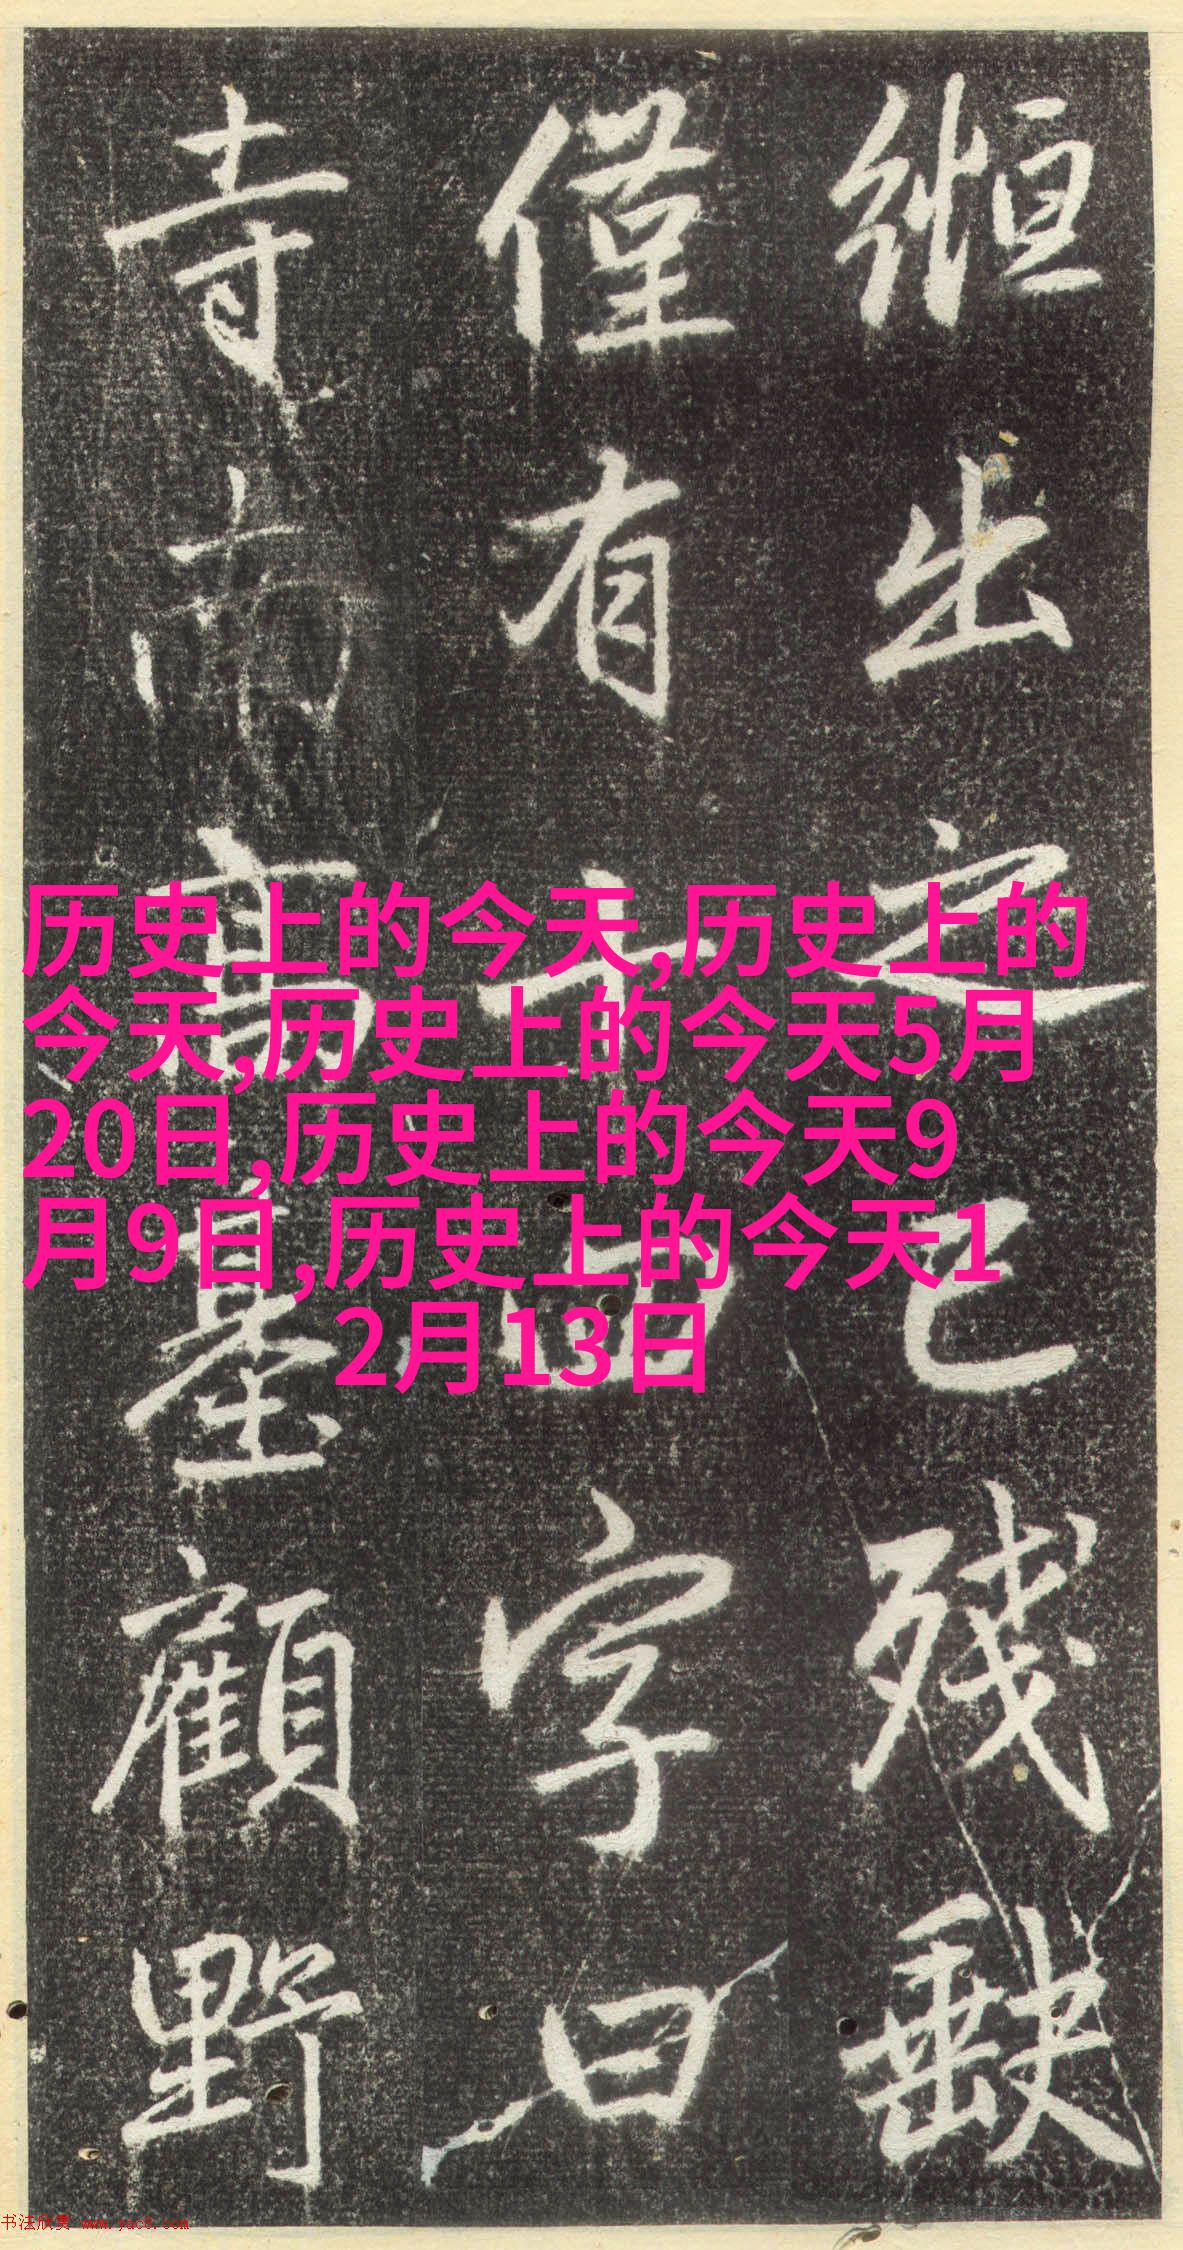 緪出之已殘缺
僅有十四字曰
寺南高臺顧野
历史上的今天,历史上的
今天,历史上的今天5月
20日,历史上的今天9
月9日,历史上的今天1
2月13日
书法欣赏 www.yac8.com